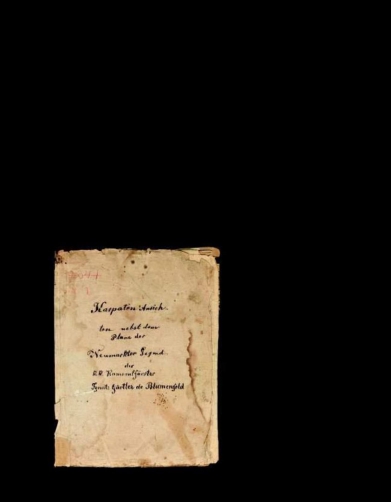 Karpaten Ansich
ten nebst dem
Plane der
Neumarkter Gegend
der
K.K. Kameralförster
Ignatz Gärtler de Blumenfeld